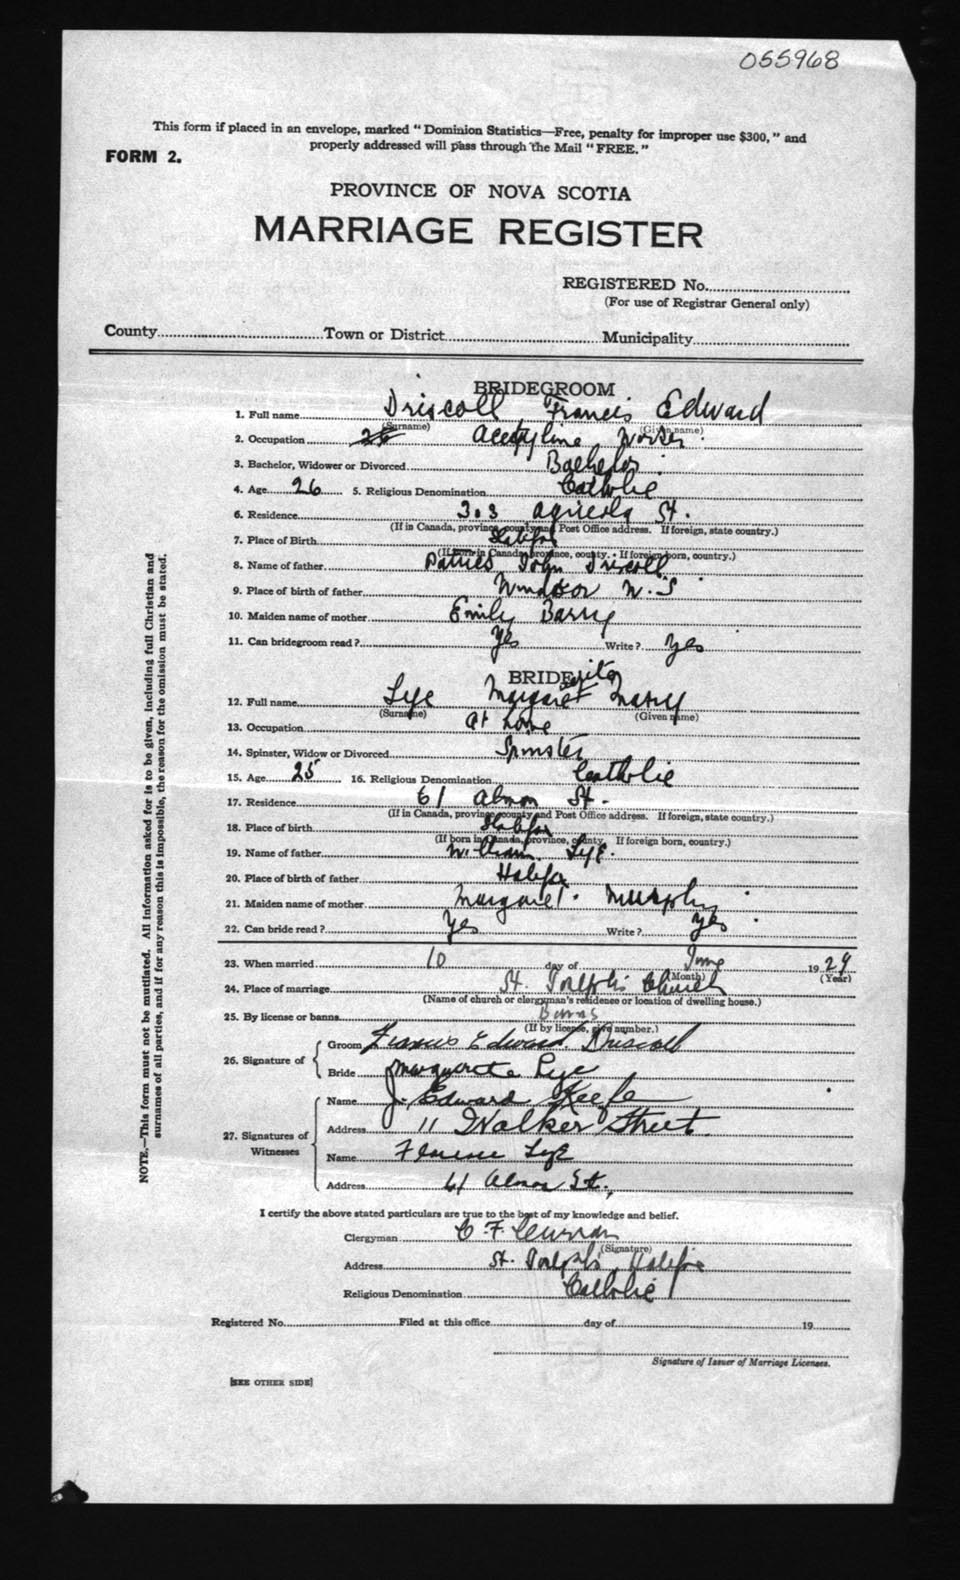 055968
This form if placed in an envelope, marked "Dominion Statistics—Free, penalty for improper use $300," and
properly addressed will pass through the Mail "FREE."
FORM 2.
PROVINCE OF NOVA SCOTIA
MARRIAGE REGISTER
REGISTERED No.
(For use of Registrar General only)
County Town or District Municipality
BRIDEGROOM
1. Full name Driscoll Francis Edward
(Surname) (Given name)
2. Occupation 26 Acetyline Worker
3. Bachelor, Widower or Divorced Bachelor
4. Age 26 5. Religious Denomination Catholic
6. Residence 303 Agricola St.
(If in Canada, province, county and Post Office address. If foreign, state country.)
7. Place of Birth Halifax
(If born in Canada, province, county. If foreign born, country.)
8. Name of father Patrick John Driscoll
9. Place of birth of father Windsor N.S
10. Maiden name of mother Emily Barry
11. Can bridegroom read? Yes Write? Yes
BRIDE
12. Full name Lye Margaret Mary
(Surname) (Given name)
13. Occupation At home
14. Spinster, Widow or Divorced Spinster
15. Age 25 16. Religious Denomination Catholic
17. Residence 61 Almon St.
(If in Canada, province, county and Post Office address. If foreign, state country.)
18. Place of birth Halifax
(If born in Canada, province, county. If foreign born, country.)
19. Name of father William Lye.
20. Place of birth of father Halifax
21. Maiden name of mother Margaret Murphy
22. Can bride read? Yes Write? Yes
23. When married 10 day of June 1929
(Month) (Year)
24. Place of marriage St. Joseph's Church
(Name of church or clergyman's residence or location of dwelling house.)
25. By license or banns Banns
(If by license, give number.)
26. Signature of Groom Francis Edward Driscoll
Bride Marguerite Lye
27. Signatures of Witnesses Name J. Edward Keefe
Address 11 Walker Street.
Name Florence Lye
Address 61 Almon St.,
I certify the above stated particulars are true to the best of my knowledge and belief.
Clergyman C. F. Curran
(Signature)
Address St. Joseph's Halifax
Religious Denomination Catholic
Registered No. Filed at this office day of 19
Signature of Issuer of Marriage Licenses.
[SEE OTHER SIDE]
NOTE.—This form must not be mutilated. All information asked for is to be given, including full Christian and
surnames of all parties, and if for any reason this is impossible, the reason for the omission must be stated.